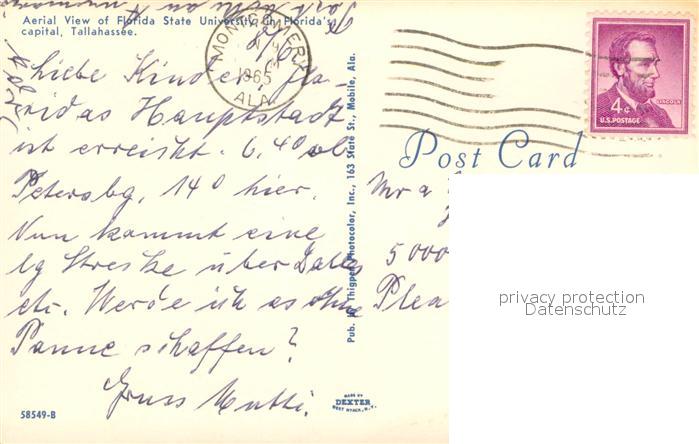 Aerial View of Florida State University, in Florida's
capital, Tallahassee.
MONTGOMERY
1965
ALA.
Liebe Kinder, Flo-
ridas Hauptstadt
ist erreicht. 6,40 ab
Petersbg, 140 hier.
Nun kommt eine
lg Strecke über Dallas
etc. Werde ich es ohne
Panne schaffen?
Gruss Mutti.
58549-B
MADE BY
DEXTER
WEST NYACK, N.Y.
Pub. by Thigpen Photocolor, Inc., 163 State St., Mobile, Ala.
4¢
LINCOLN
U.S. POSTAGE
Post Card
Mr a
5000
Plea
privacy protection
Datenschutz